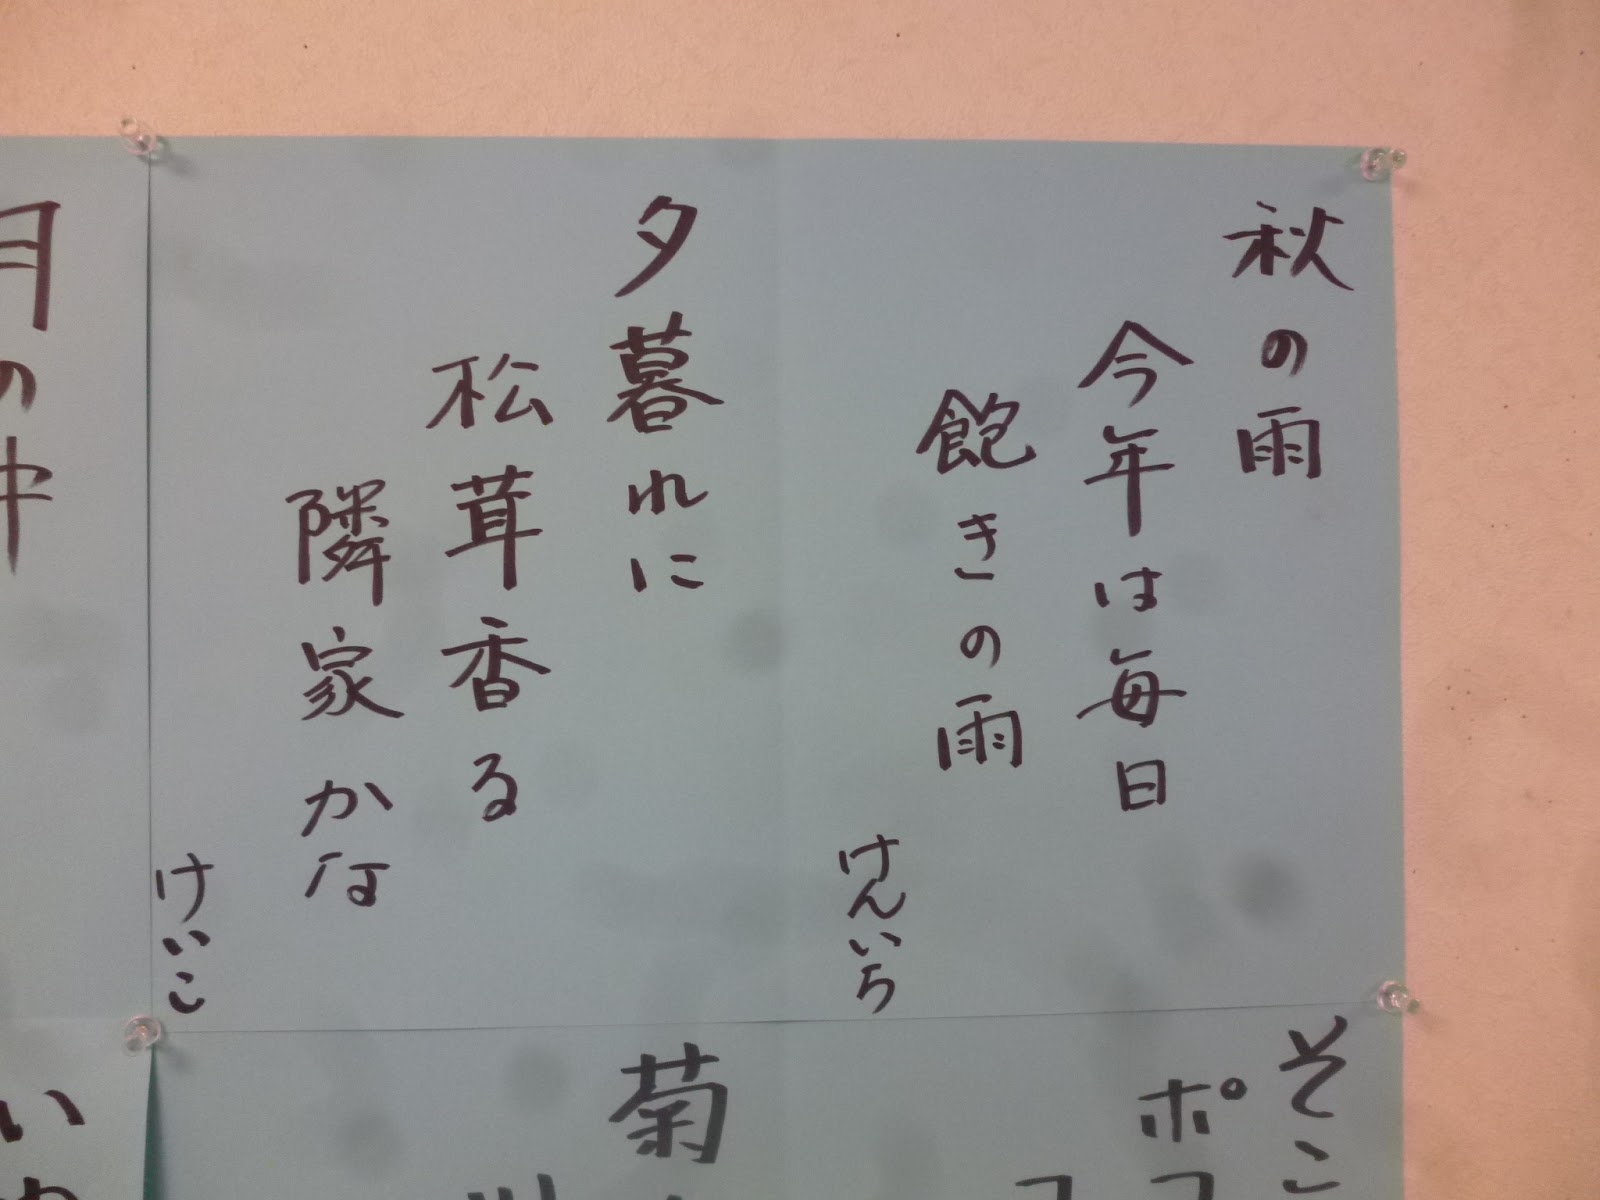 秋の雨
今年は毎日
飽きの雨
けんいち
夕暮れに
松茸香る
隣家かな
けいこ
月の中
そこ
ポコ
菊